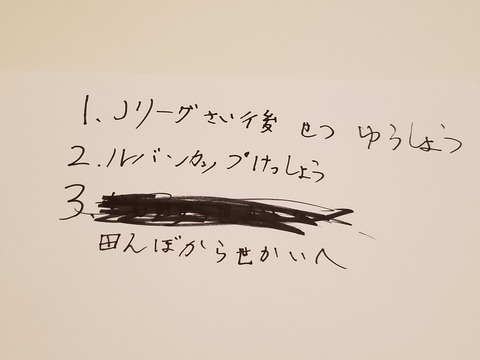 1、Jリーグさい後 せつ ゆうしょう
2、ルバンカップけっしょう
3、
田んぼからせかいへ